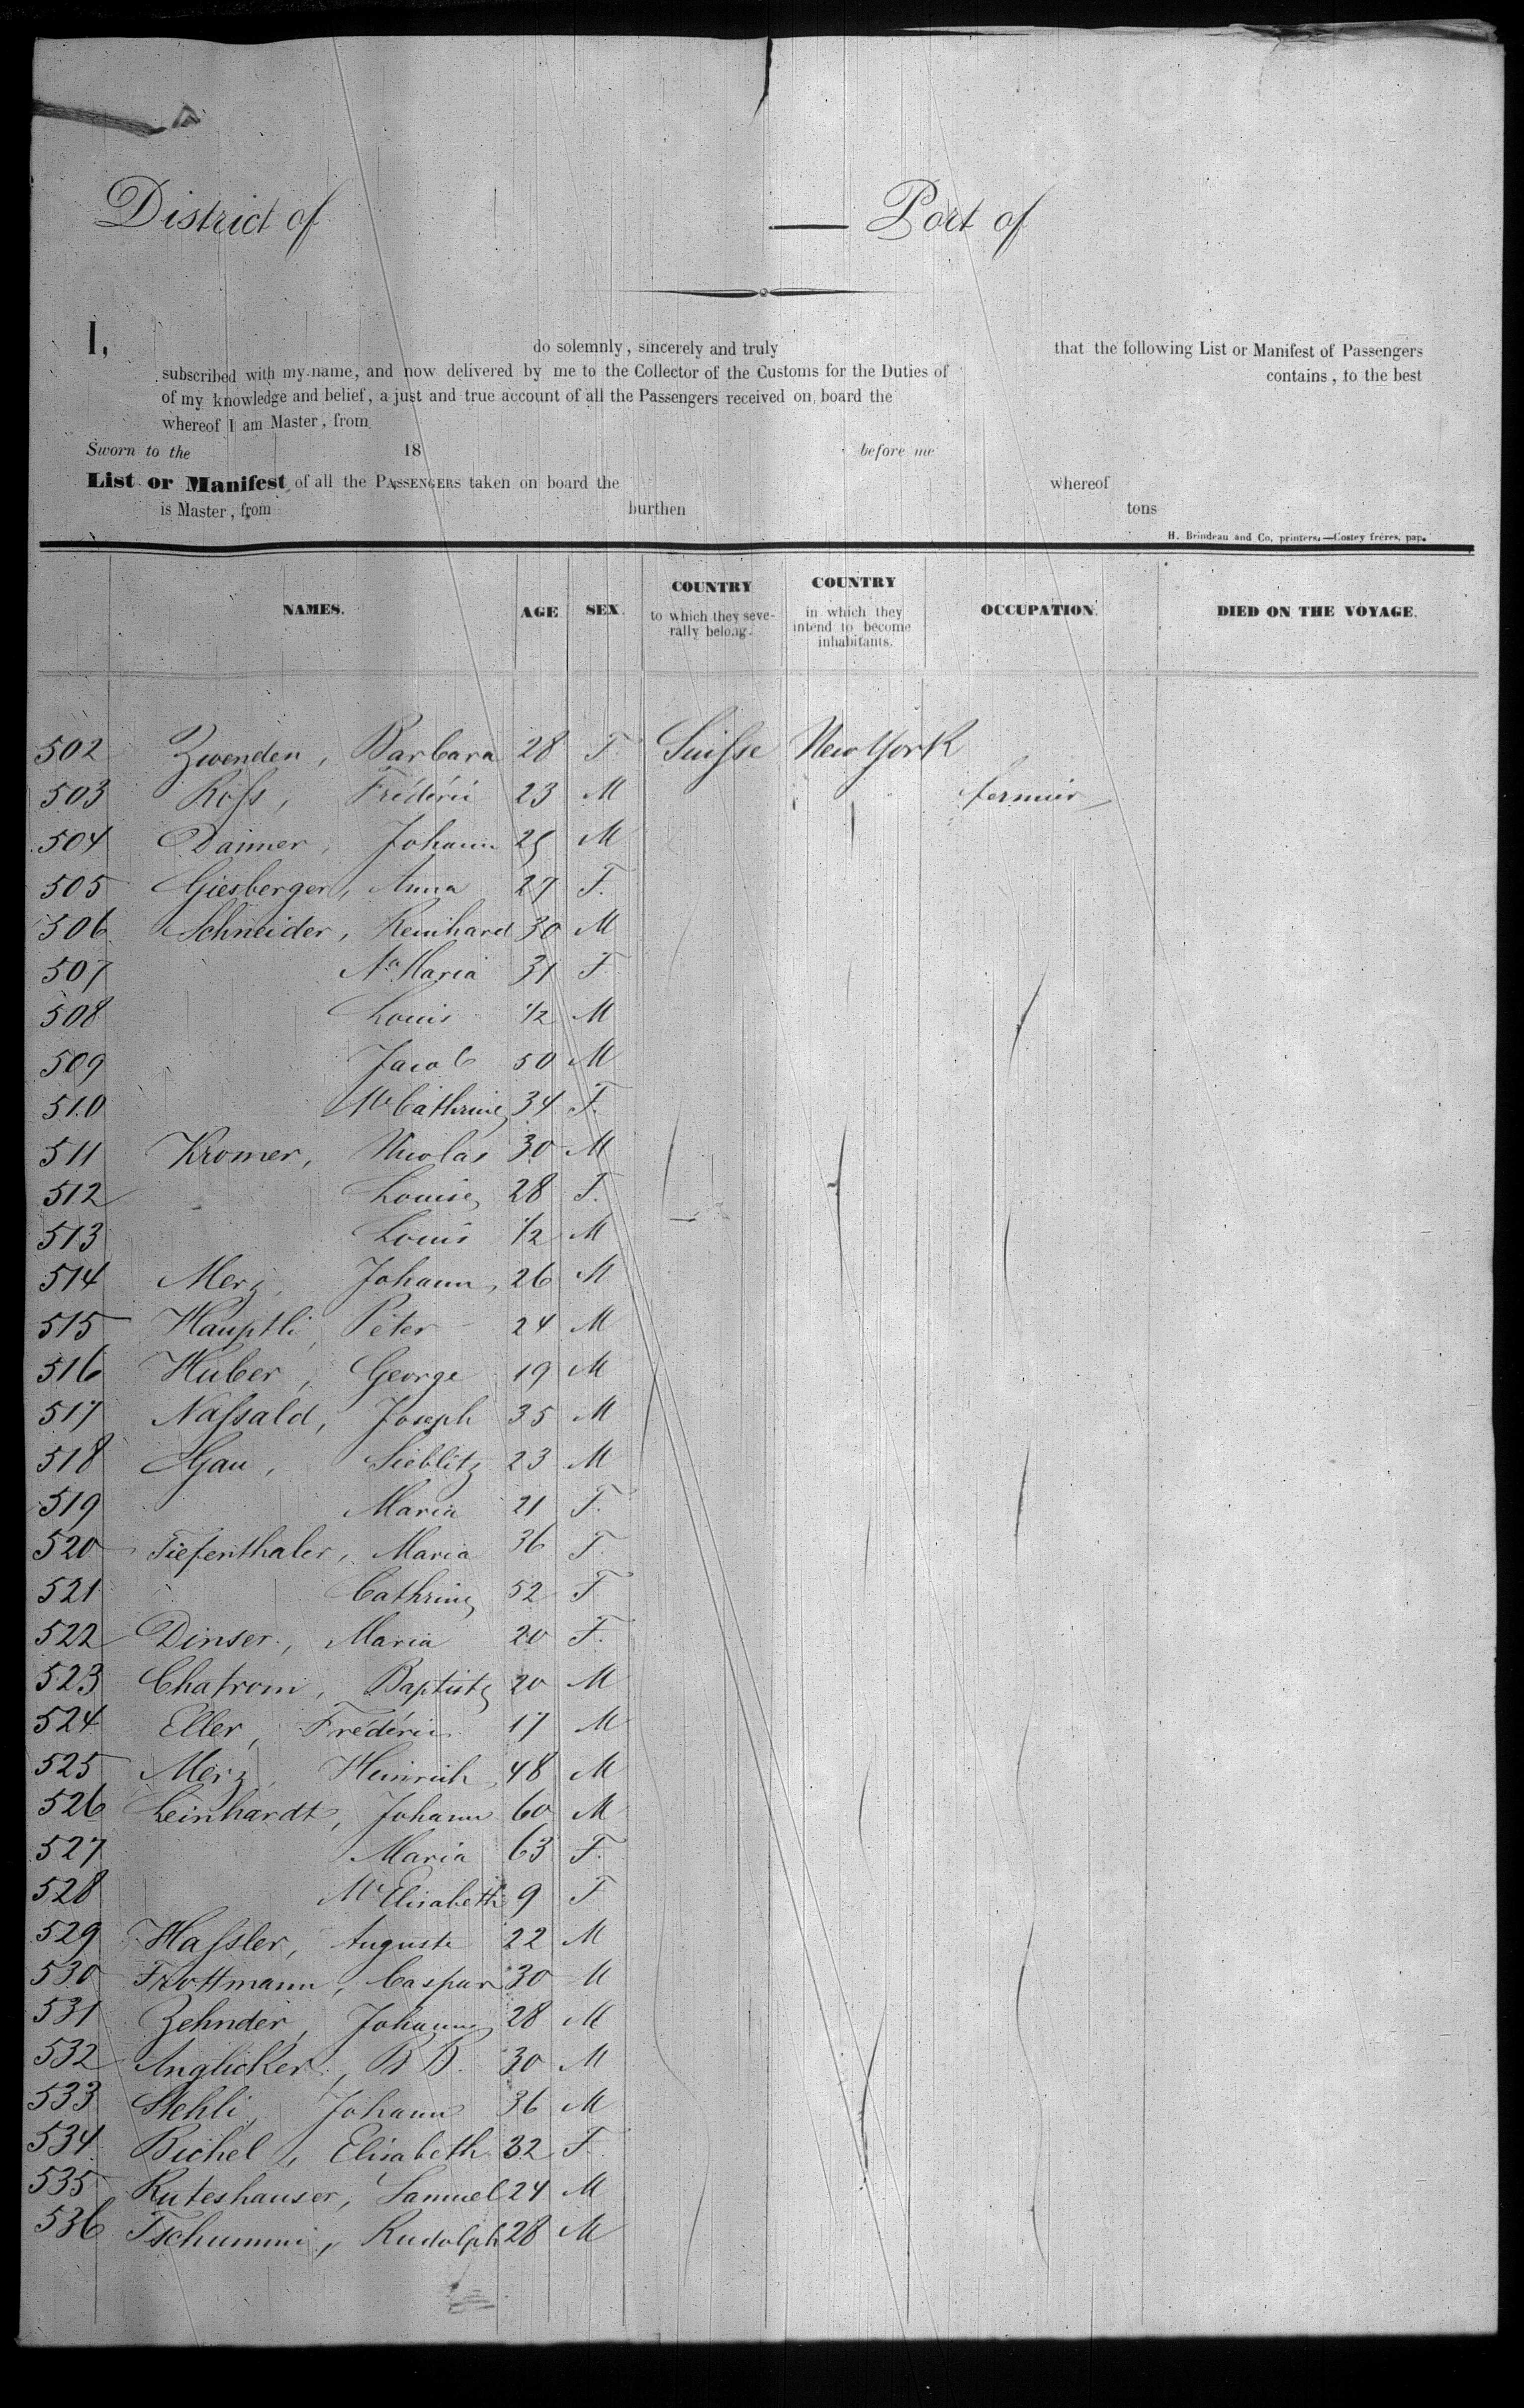 District of — Port of
I, do solemnly, sincerely and truly that the following List or Manifest of Passengers
subscribed with my name, and now delivered by me to the Collector of the Customs for the Duties of contains, to the best
of my knowledge and belief, a just and true account of all the Passengers received on board the
whereof I am Master, from
Sworn to the 18 before me
List or Manifest of all the PASSENGERS taken on board the whereof
is Master, from burthen tons
H. Brindeau and Co, printers.—Costey frères, pap.
NAMES. AGE SEX. COUNTRY to which they seve-rally belong. COUNTRY in which they intend to become inhabitants. OCCUPATION. DIED ON THE VOYAGE.
502 Zwenden, Barbara 28 F. Suisse New York
503 Ross, Fréderic 23 M fermier
504 Danner, Johann 25 M
505 Giesberger, Anna 27 F.
506 Schneider, Reinhard 30 M
507 Aa Maria 31 F
508 Louis 1/2 M
509 Jacob 50 M
510 Me Cathrine 34 F.
511 Kromer, Nicolas 30 M
512 Louise 28 F.
513 Louis 1/2 M
514 Merz, Johann 26 M
515 Hauptli, Peter 24 M
516 Huber, George 19 M
517 Nassald, Joseph 35 M
518 23 M
519 Maria 21 F.
520 Tiefenthaler, Maria 36 F
521 Cathrine 52 F
522 Dinser, Maria 20 F.
523 Baptiste 20 M
524 Eller, Fréderic 17 M
525 Merz, Heinrich 48 M
526 Leinhardt, Johann 60 M
527 Maria 63 F.
528 Me Elisabeth 9 F
529 Hassler, Auguste 22 M
530 Trottmann, Caspar 30 M
531 Zehnder, Johann 28 M
532 Anglicker, B B. 30 M
533 Stehli, Johann 36 M
534 Bichel, Elisabeth 32 F.
535 Ruteshauser, Samuel 24 M
536 Tschummi, Rudolph 28 M